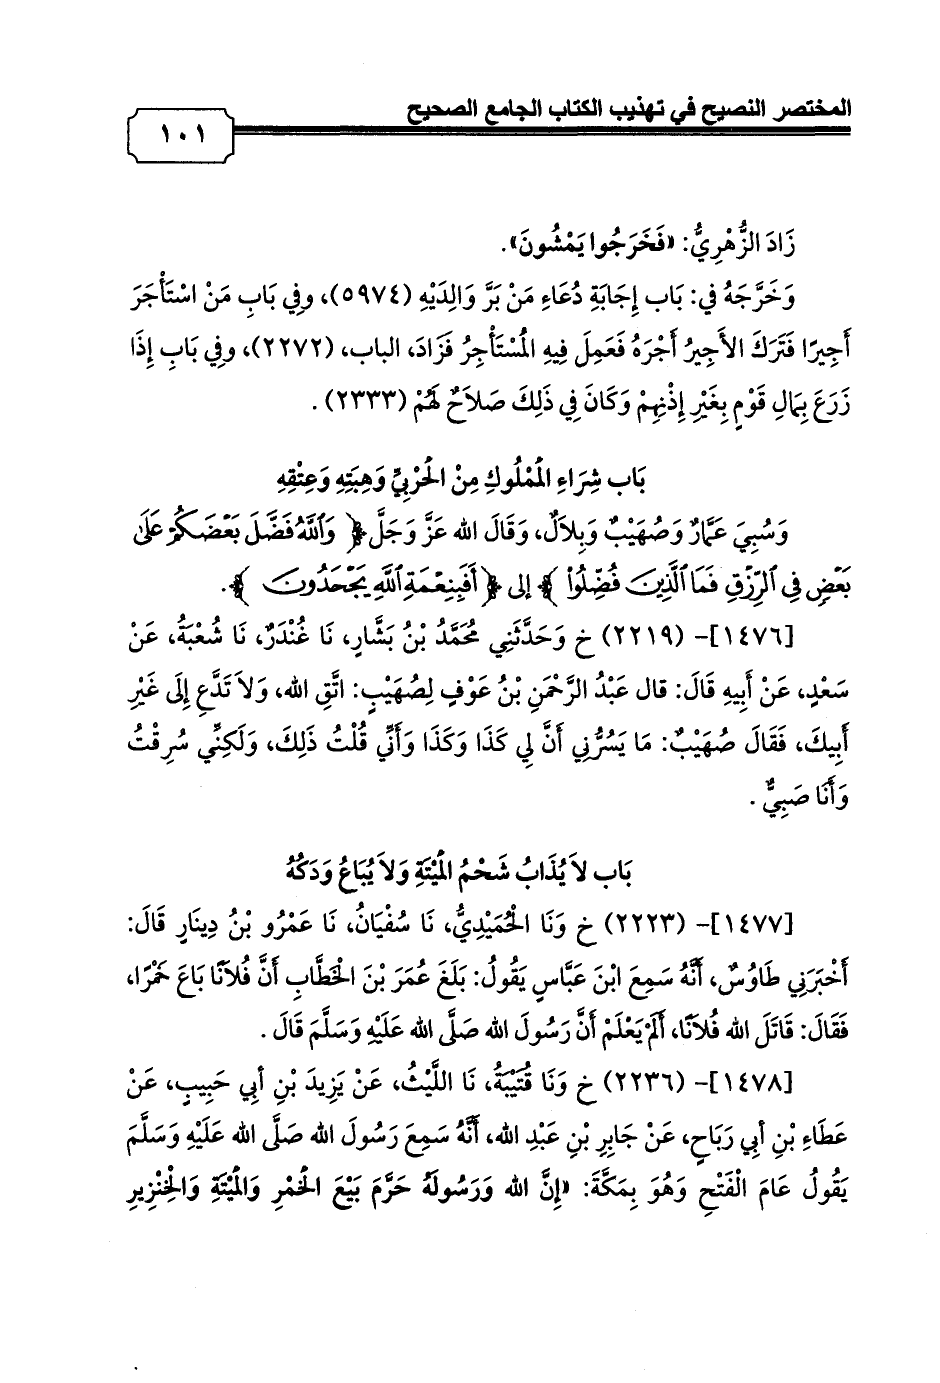 المختصر النصيح في تهذيب الكتاب الجامع الصحيح
١٠١
زَادَ الزُّهْرِيُّ: «فَخَرَجُوا يَمْشُونَ».
وَخَرَّجَهُ في: بَاب إِجَابَةِ دُعَاءِ مَنْ بَرَّ وَالِدَيْهِ (٥٩٧٤)، وفِي بَابِ مَنْ اسْتَأْجَرَ
أَجِيرًا فَتَرَكَ الأَجِيرُ أَجْرَهُ فَعَمِلَ فِيهِ الْمُسْتَأْجِرُ فَزَادَ، الباب، (٢٢٧٢)، وفِي بَابِ إِذَا
زَرَعَ بِمَالِ قَوْمٍ بِغَيْرِ إِذْنِهِمْ وَكَانَ فِي ذَلِكَ صَلاَحٌ لَهُمْ (٢٣٣٣).
بَاب شِرَاءِ الْمَمْلُوكِ مِنْ الْحَرْبِيِّ وَهِبَتِهِ وَعِتْقِهِ
وَسُبِيَ عَمَّارٌ وَصُهَيْبٌ وَبِلاَلٌ، وَقَالَ الله عَزَّ وَجَلَّ ﴿ وَٱللَّهُ فَضَّلَ بَعْضَكُمْ عَلَىٰ
بَعْضٍ فِى ٱلرِّزْقِ فَمَا ٱلَّذِينَ فُضِّلُوا۟ ﴾ إلى ﴿ أَفَبِنِعْمَةِ ٱللَّهِ يَجْحَدُونَ ﴾.
[١٤٧٦]- (٢٢١٩) خ وَحَدَّثَنِي مُحَمَّدُ بْنُ بَشَّارٍ، نَا غُنْدَرٌ، نَا شُعْبَةُ، عَنْ
سَعْدٍ، عَنْ أَبِيهِ قَالَ: قال عَبْدُ الرَّحْمَنِ بْنُ عَوْفٍ لِصُهَيْبٍ: اتَّقِ الله، وَلاَ تَدَّعِ إِلَى غَيْرِ
أَبِيكَ، فَقَالَ صُهَيْبٌ: مَا يَسُرُّنِي أَنَّ لِي كَذَا وَكَذَا وَأَنِّي قُلْتُ ذَلِكَ، وَلَكِنِّي سُرِقْتُ
وَأَنَا صَبِيٌّ.
بَاب لاَ يُذَابُ شَحْمُ الْمَيْتَةِ وَلاَ يُبَاعُ وَدَكُهُ
[١٤٧٧]- (٢٢٢٣) خ وَنَا الْحُمَيْدِيُّ، نَا سُفْيَانُ، نَا عَمْرُو بْنُ دِينَارٍ قَالَ:
أَخْبَرَنِي طَاوُسٌ، أَنَّهُ سَمِعَ ابْنَ عَبَّاسٍ يَقُولُ: بَلَغَ عُمَرَ بْنَ الْخَطَّابِ أَنَّ فُلاَنًا بَاعَ خَمْرًا،
فَقَالَ: قَاتَلَ الله فُلاَنًا، أَلَمْ يَعْلَمْ أَنَّ رَسُولَ الله صَلَّى الله عَلَيْهِ وَسَلَّمَ قَالَ.
[١٤٧٨]- (٢٢٣٦) خ وَنَا قُتَيْبَةُ، نَا اللَّيْثُ، عَنْ يَزِيدَ بْنِ أَبِي حَبِيبٍ، عَنْ
عَطَاءِ بْنِ أَبِي رَبَاحٍ، عَنْ جَابِرِ بْنِ عَبْدِ الله، أَنَّهُ سَمِعَ رَسُولَ الله صَلَّى الله عَلَيْهِ وَسَلَّمَ
يَقُولُ عَامَ الْفَتْحِ وَهُوَ بِمَكَّةَ: «إِنَّ الله وَرَسُولَهُ حَرَّمَ بَيْعَ الْخَمْرِ وَالْمَيْتَةِ وَالْخِنْزِيرِ